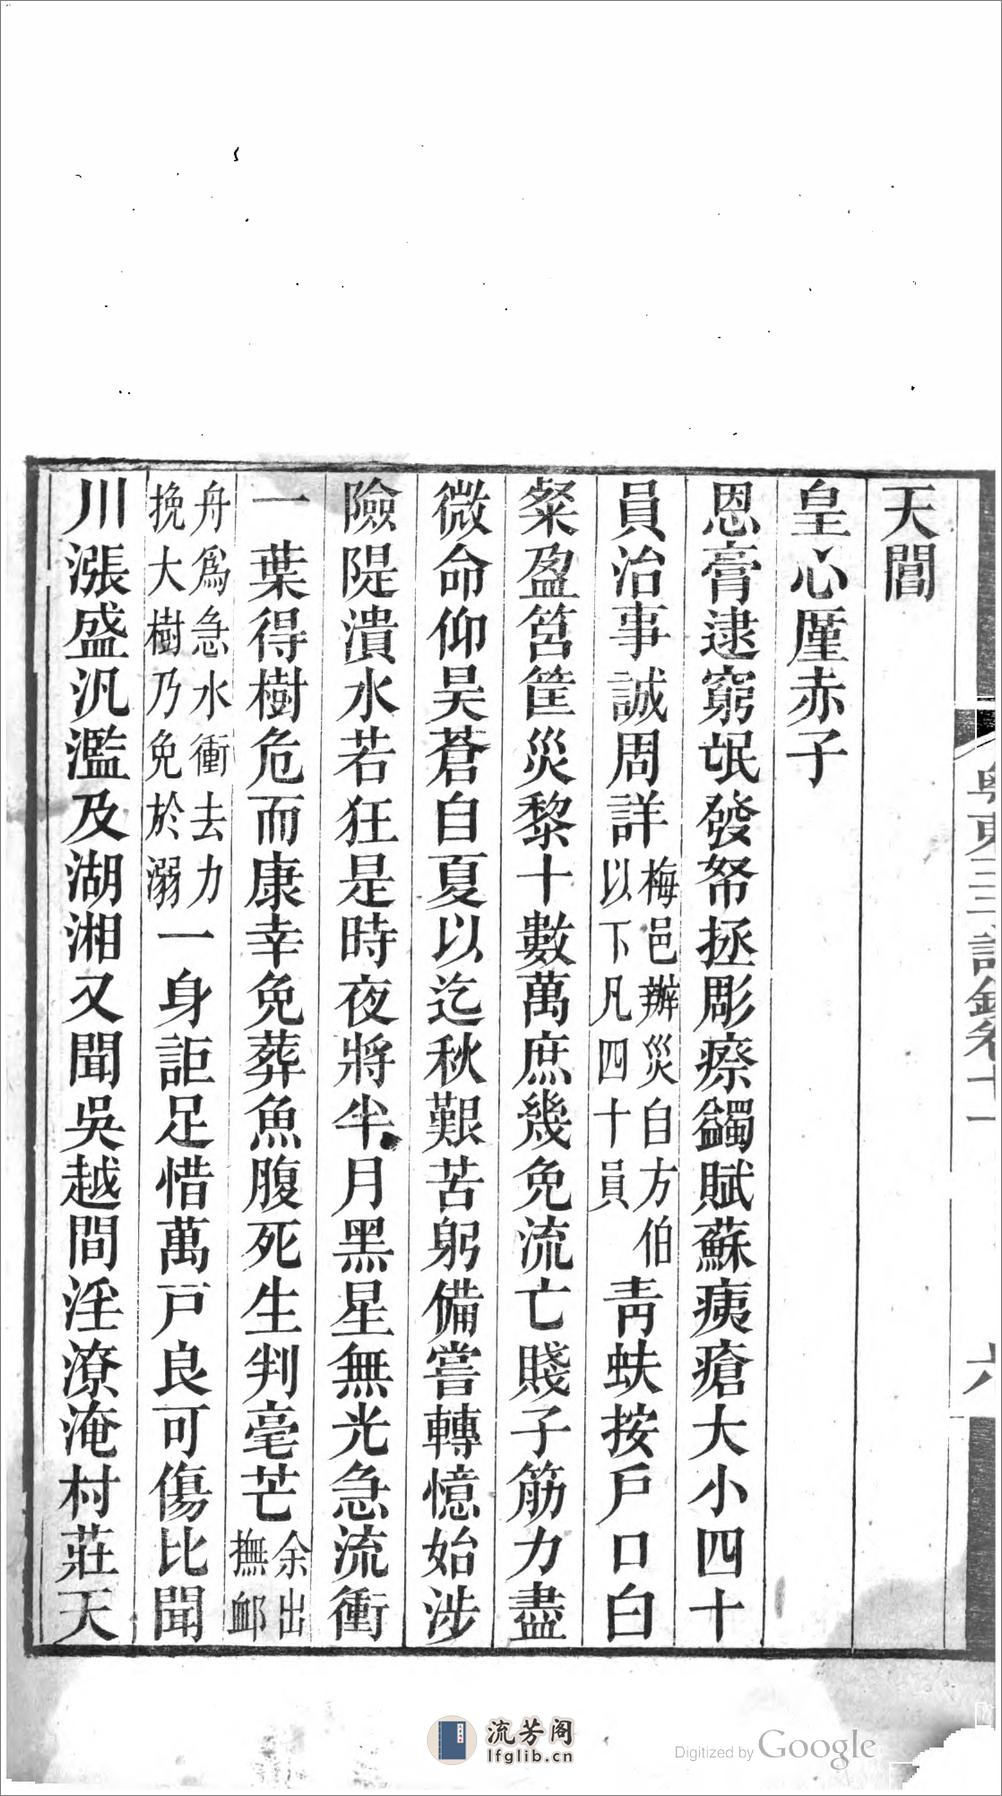 天閶
皇心厪赤子
恩膏逮窮氓發帑拯彫瘵蠲賦蘇痍瘡大小四十
員治事誠周詳梅邑辦災自方伯以下凡四十員青蚨按戶口白
粲盈筥筐災黎十數萬庶幾免流亡賤子筋力盡
微命仰昊蒼自夏以迄秋艱苦躬備嘗轉憶始涉
險隄潰水若狂是時夜將半月黑星無光急流衝
一葉得樹危而康幸免葬魚腹死生判毫芒余出撫䘏
舟爲急水衝去力挽大樹乃免於溺一身詎足惜萬戸良可傷比聞
川漲盛汎濫及湖湘又聞吳越間淫潦淹村莊天
粵東三子詩鈔卷十一
六
流芳阁
lfglib.cn
Digitized by Google